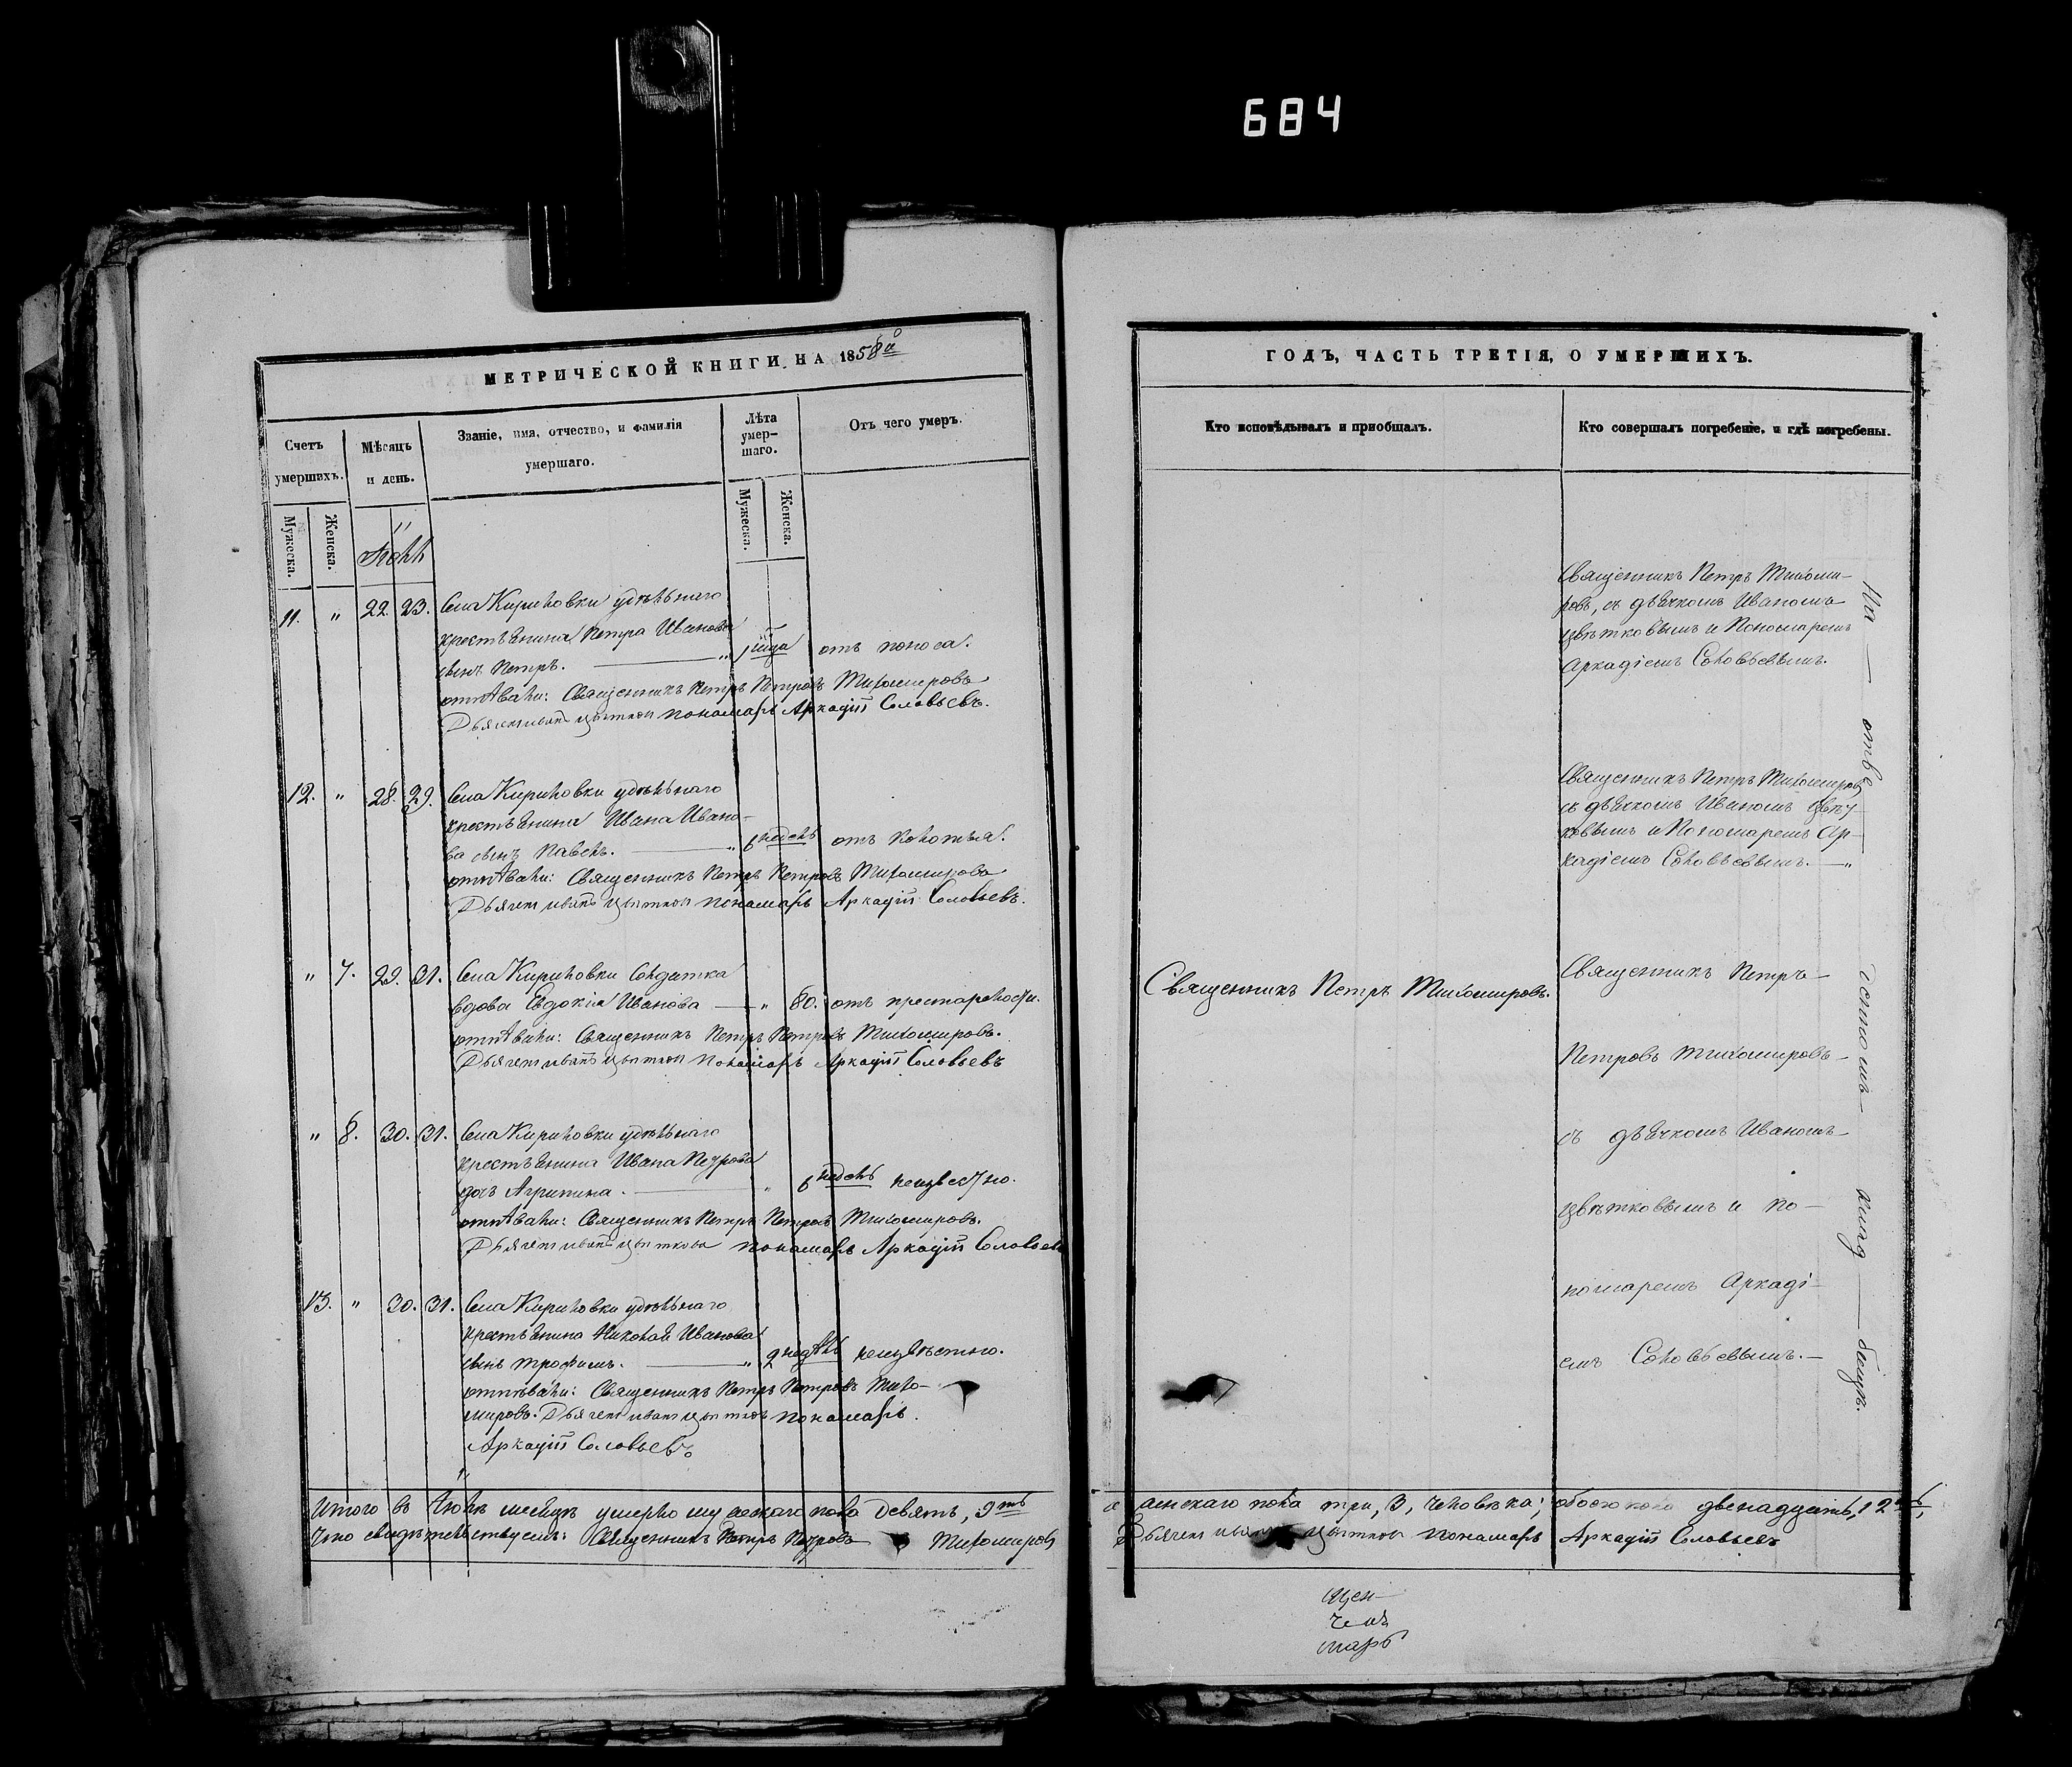 684
МЕТРИЧЕСКОЙ КНИГИ НА 1858й
Счетъ умершихъ.
Мѣсяцъ и день.
Званіе, имя, отчество, и фамилія умершаго.
Лѣта умер-
шаго.
Отъ чего умеръ.
Мужеска.
Женска.
Мужеска.
Женска.
Іюль
11. " 22. 23. Села Кириловки удѣльнаго
крестьянина Петра Иванова
сынъ Петръ. " 1 года отъ поноса.
отпѣвали: Священникъ Петръ Петровъ Тихомировъ
Дьячекъ Иванъ Цвѣтков пономарь Аркадій Соловьевъ.
12. " 28. 29. Села Кириловки удѣльнаго
крестьянина Ивана Ивано-
ва сынъ Павелъ. " 6 недель отъ колотья.
отпѣвали: Священникъ Петръ Петровъ Тихомировъ
Дьячекъ Иванъ Цвѣтков пономарь Аркадій Соловьевъ.
" 7. 29. 31. Села Кириловки Солдатка
вдова Евдокія Иванова " 80. отъ престарелости.
отпѣвали: Священникъ Петръ Петровъ Тихомировъ.
Дьячекъ Иванъ Цвѣтков пономарь Аркадій Соловьевъ
" 8. 30. 31. Села Кириловки удѣльнаго
крестьянина Ивана Петрова
дочь Агрипина. " 6 недель неизвестно.
отпѣвали: Священникъ Петръ Петровъ Тихомировъ.
Дьячекъ Иванъ Цвѣтковъ пономарь Аркадій Соловьевъ
13. " 30. 31. Села Кириловки удѣльнаго
крестьянина Николая Иванова
сынъ Трофимъ. " 2 недѣль неизвѣстно.
отпѣвали: Священникъ Петръ Петровъ Тихо-
мировъ. Дьячекъ Иванъ Цвѣтков пономарь.
Аркадій Соловьевъ
Итого въ Іюлѣ месяцѣ умерло мужескаго пола девять, 9ть
Что свидѣтельствуемъ: Священникъ Петръ Петровъ Тихомировъ
ГОДЪ, ЧАСТЬ ТРЕТІЯ, О УМЕРШИХЪ.
Кто исповѣдывалъ и приобщалъ.
Кто совершалъ погребеніе, и гдѣ погребены.
Священникъ Петръ Тихоми-
ровъ, съ дьячкомъ Иваномъ
Цвѣтковымъ и Пономаремъ
Аркадіемъ Соловьевымъ.
Священникъ Петръ Тихомировъ
съ дьячкомъ Иваномъ Цвѣт-
ковымъ и Пономаремъ Ар-
кадіемъ Соловьевымъ.
Священникъ Петръ Тихомировъ.
Священникъ Петръ
Петровъ Тихомировъ
съ дьячкомъ Иваномъ
Цвѣтковымъ и по-
номаремъ Аркаді-
емъ Соловьевымъ.
На отве денномъ клад бищѣ.
женскаго пола три, 3, человѣка; обоего пола двенадцать, 12ть,
Дьячекъ Иванъ Цвѣтков пономарь Аркадій Соловьевъ
щен-
чекъ
марь